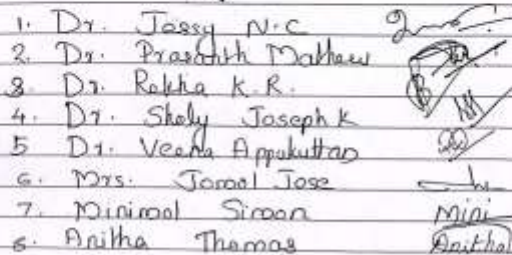 1. Dr. Jossy N.C
2. Dr. Prasanth Mathew
3 Dr. Rekha K.R.
4. Dr. Shely Joseph K
5 Dr. Veena Appukuttan
6. Mrs. Jomol Jose
7. Minimol Simon Mini
8. Anitha Thomas Anitha